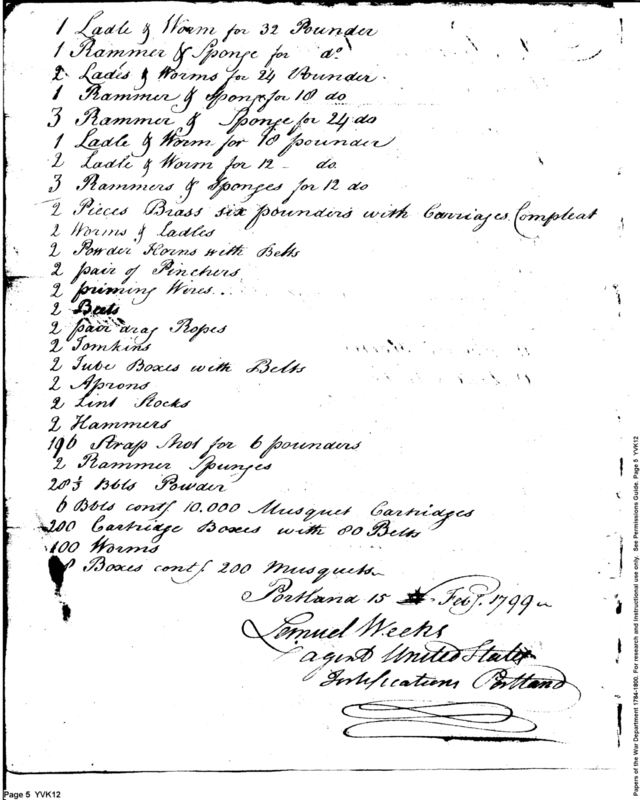 1 Ladle & Worm for 32 Pounder
1 Rammer & Sponge for do
2 Lades & Worms for 24 Pounder
1 Rammer & Sponge for 18 do
3 Rammer & Sponge for 24 do
1 Ladle & Worm for 18 pounder
2 Ladle & Worm for 12 - do.
3 Rammers & Sponges for 12 do
2 Pieces Brass six pounders with Carriages Compleat
2 Worms & Ladles
2 Powder Horns with Belts
2 pair of Pinchers
2 priming Wires..
2
2 pair drag Ropes
2 Tomkins
2 Tube Boxes with Belts
2 Aprons
2 Lint Stocks
2 Hammers
196 Strap Shot for 6 pounders
2 Rammer Spunges
28½ Bbls Powder
6 Bbls contg 10.000 Musquet Cartridges
200 Cartridge Boxes with 80 Belts
100 Worms
8 Boxes contg 200 Musquets
Portland 15 Feby. 1799
Lemuel Weeks
agent United States
fortifications Portland
Page 5 YVK12
Papers of the War Department 1784-1800. For research and instructional use only. See Permissions Guide. Page 5 YVK12